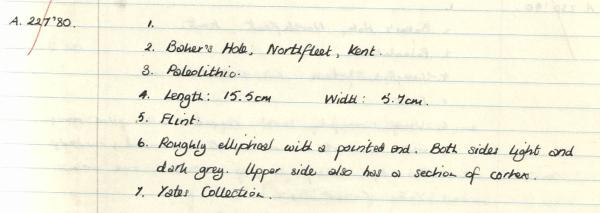 A. 227'80.
1.
2. Baker's Hole, Northfleet, Kent.
3. Paleolithic.
4. Length: 15.5cm Width: 5.7cm.
5. Flint.
6. Roughly elliptical with a pointed end. Both sides light and
dark grey. Upper side also has a section of cortex.
7. Yates Collection.